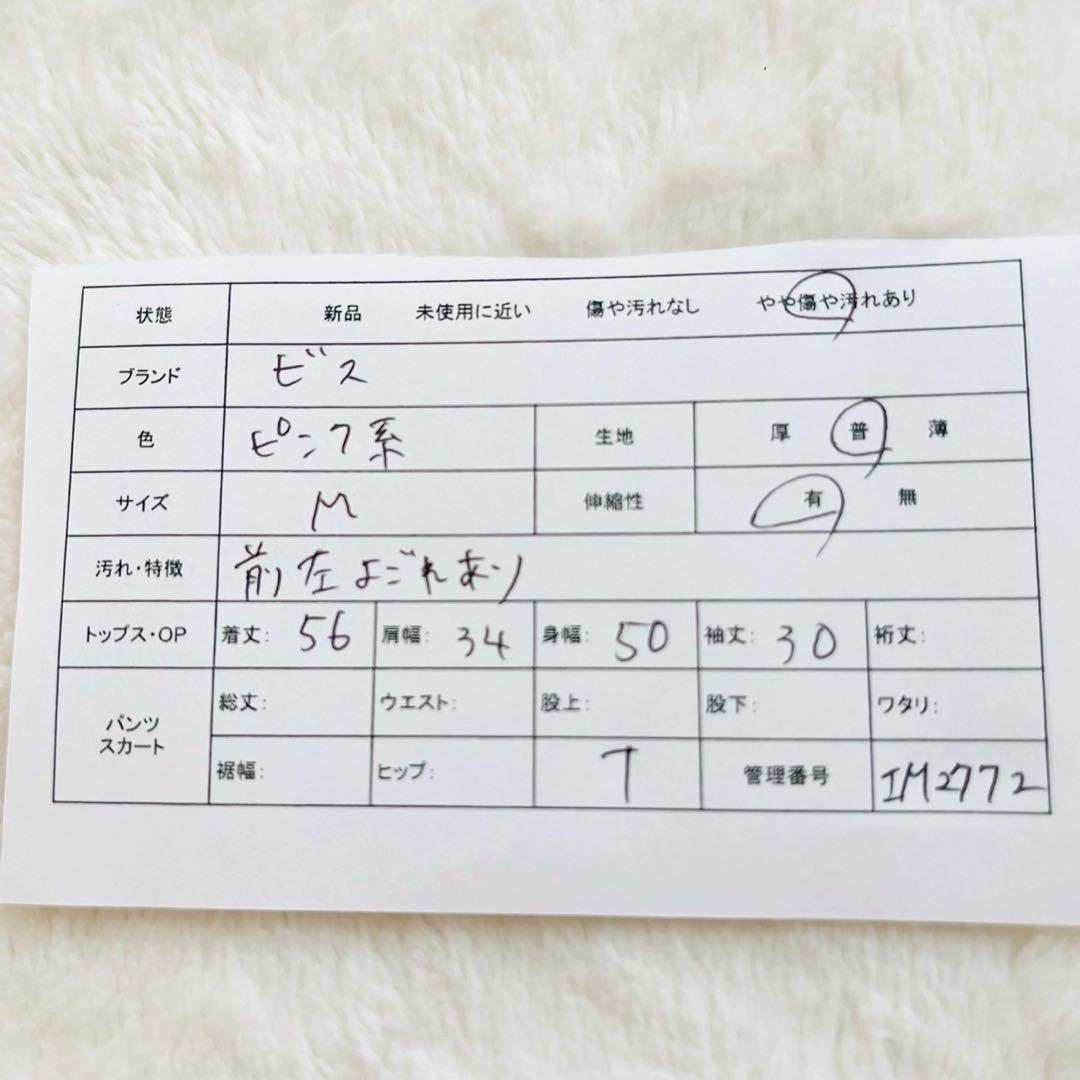 状態 新品 未使用に近い 傷や汚れなし やや傷や汚れあり
ブランド ビス
色 ピンク系 生地 厚 普 薄
サイズ M 伸縮性 有 無
汚れ・特徴 前左よごれあり
トップス・OP 着丈: 56 肩幅: 34 身幅: 50 袖丈: 30 裄丈:
パンツ
スカート
総丈: ウエスト: 股上: 股下: ワタリ:
裾幅: ヒップ: T 管理番号 IM2772